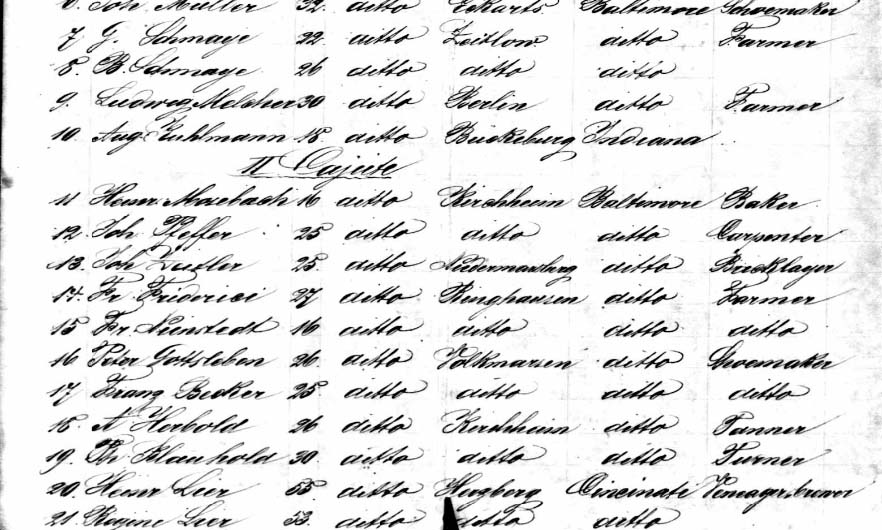 6. Joh. Müller 32. ditto Eckarts. Baltimore Shoemaker
7 G. Schmaye 22. ditto Zeitlow. ditto Farmer
8. B. Schmaye 26 ditto ditto ditto
9. Ludwig Melcher 30 ditto Berlin ditto Farmer
10. Aug. Kuhlmann 18. ditto Bückeburg Indiana
II Cajüte
11 Henr. Mosebach 16 ditto Kirchheim Baltimore Baker
12. Joh Pfeffer 25 ditto ditto ditto Carpenter
13. Joh 25. ditto Niedermarsberg ditto Bricklayer
14. Fr. Friderici 27 ditto Ringhausen ditto Farmer
15 Fr. Nienstedt 16 ditto ditto ditto ditto
16 Peter Gottsleben 26. ditto Volkmarsen ditto Shoemaker
17 Franz Becker 25 ditto ditto ditto ditto
18. A Herbold 26 ditto Kirchheim ditto Tanner
19. Ph. Blauhold 30 ditto ditto ditto Turner
20. Henr Lier 55. ditto Cincinati
21. Regine Lier 53. ditto ditto ditto